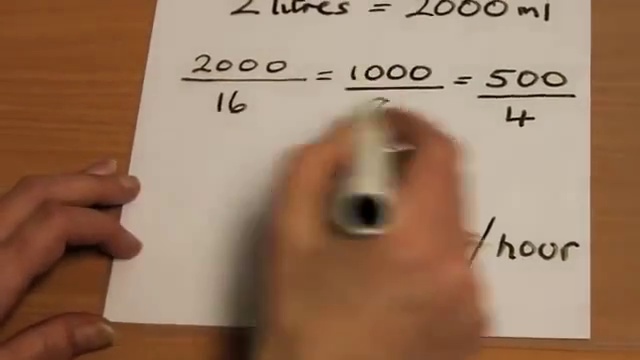 2 litres = 2000 ml
2000/16 = 1000/ = 500/4
/hour